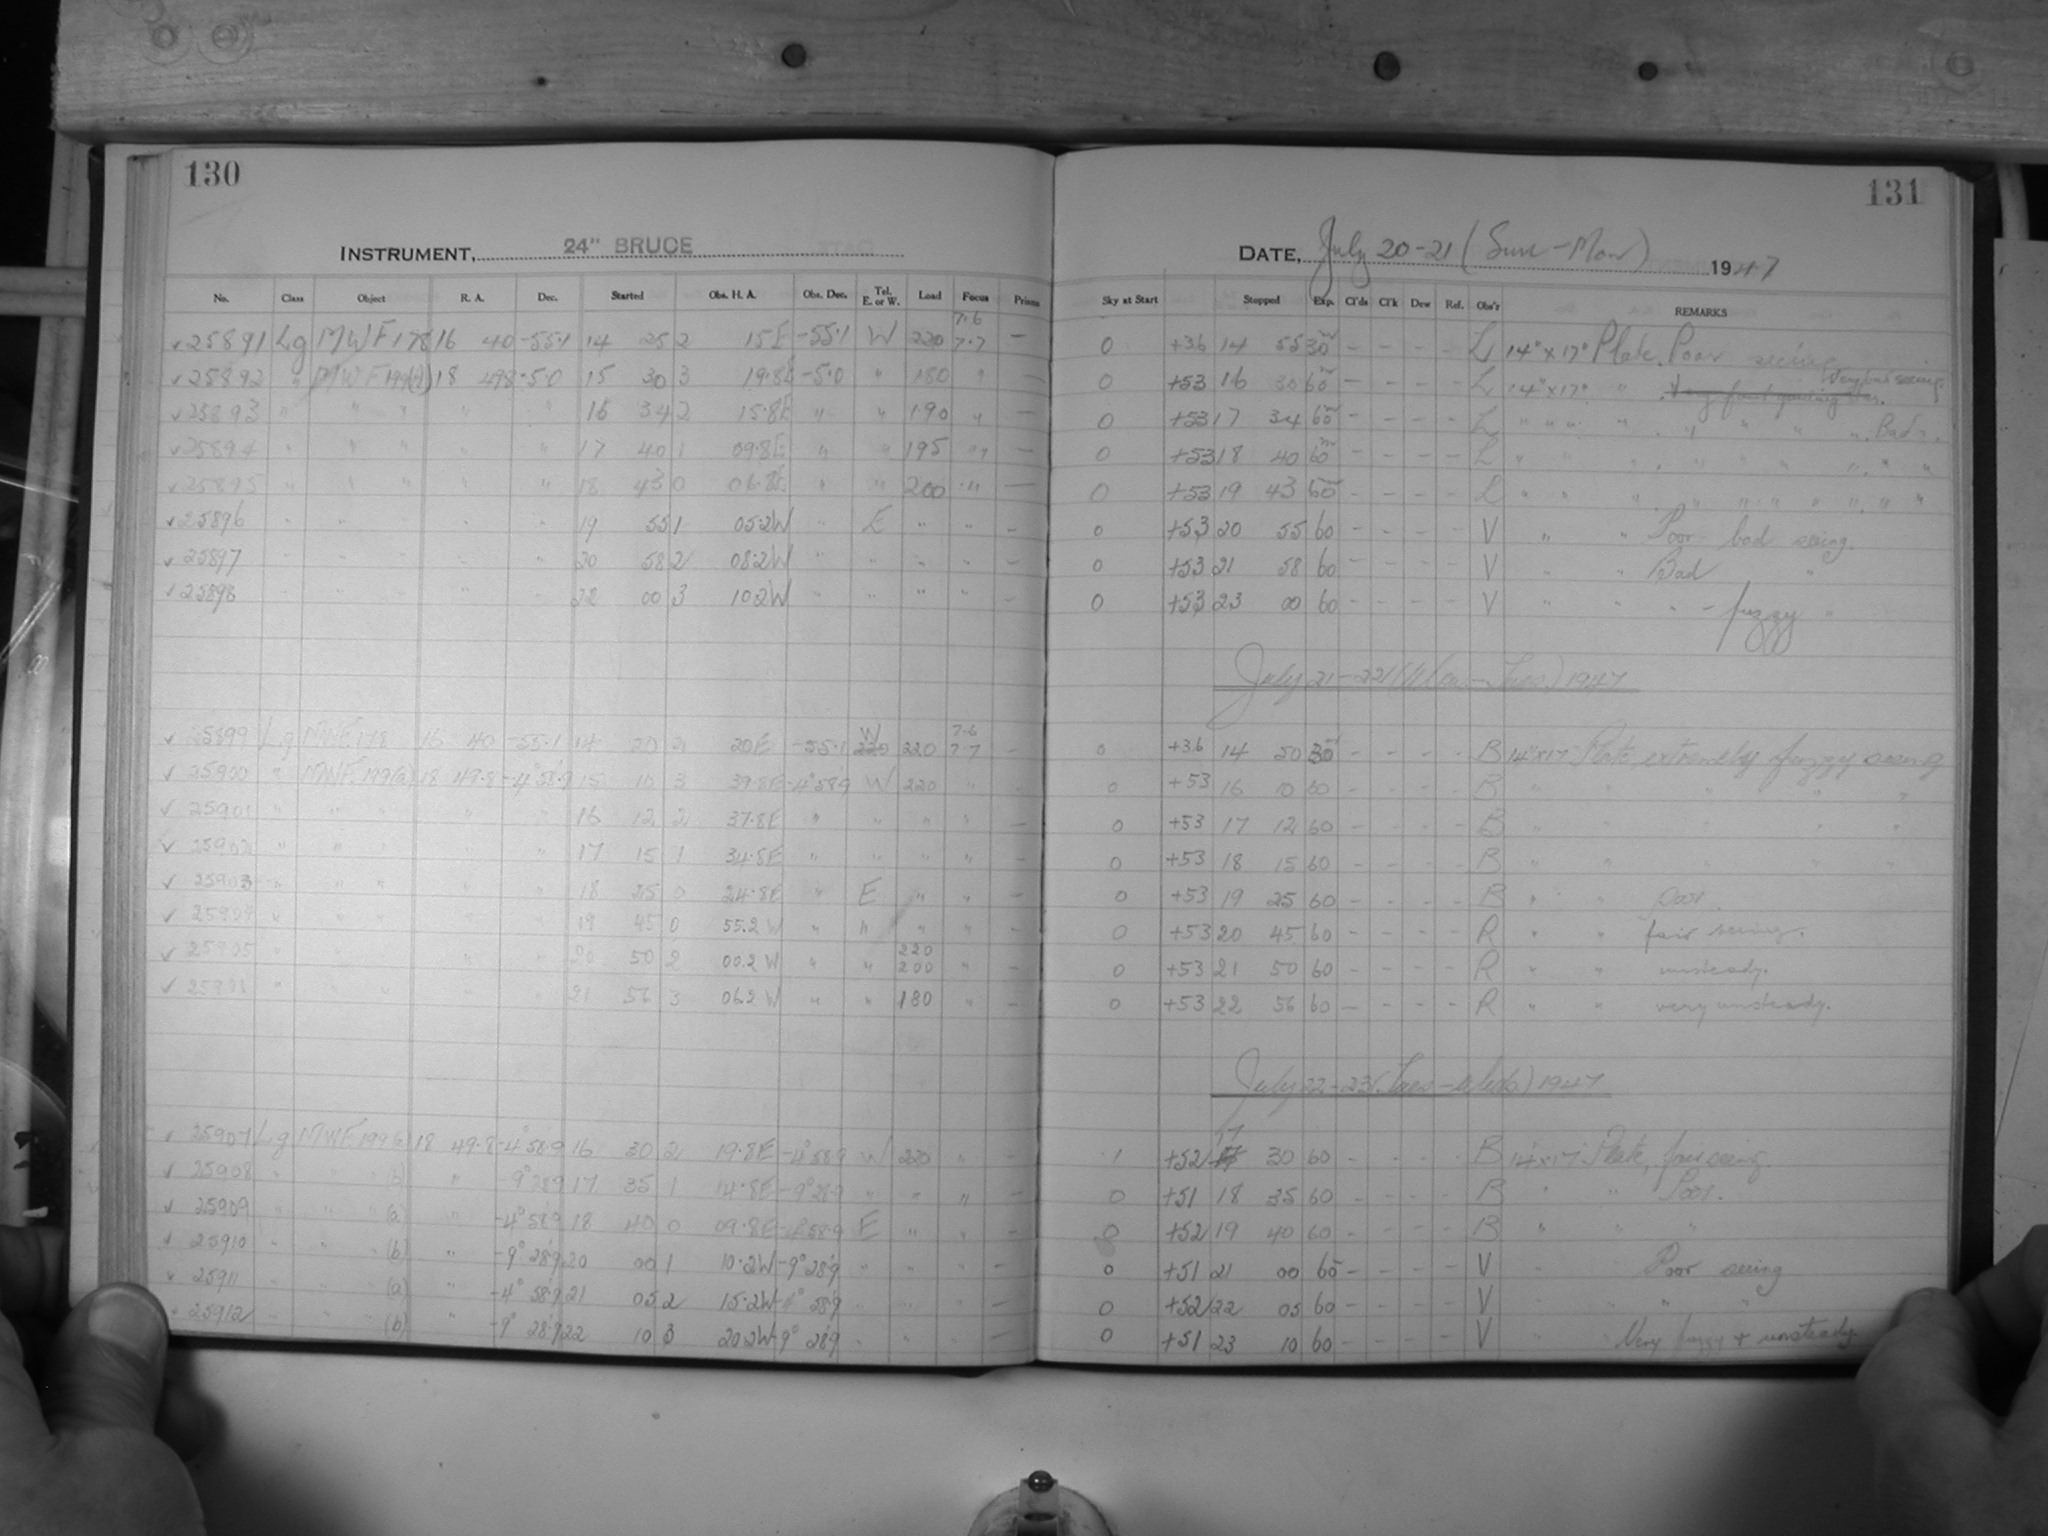 130
INSTRUMENT, 24" BRUCE
No. Class Object R. A. Dec. Started Obs. H. A. Obs. Dec. Tel. E. or W. Load Focus Prisms
√25891 Lg MWF178 16 40 -55.1 14 25 2 15E -55.1 W 220 7.6 7.7 —
√25892 " 18 49.8 -5.0 15 30 3 19.8E -5.0 " 180 " —
√25893 " " " " " 16 34 2 15.8E " " 190 " —
√25894 " " " " " 17 40 1 09.8E " " 195 " —
√25895 " " " " " 18 43 0 06.8E " " 200 " —
√25896 " " " " 19 55 1 05.2W " E " " –
√25897 " " " " 20 58 2 08.2W " " " " –
√25898 " " " " 22 00 3 10.2W " " " " –
√ 25899 Lg MWF 178 16 40 -55.1 14 20 2 20E -55.1 W 220 220 7.6 7.7 –
√ 25900 " MWF 199(a) 18 49.8 -4°58.9 15 10 3 39.8E -4°58.9 W 220 " –
√ 25901 " " " " " 16 12 2 37.8E " " " " –
√ 25902 " " " " " 17 15 1 34.8E " " " " –
√ 25903 " " " " " 18 25 0 24.8E " E " " –
√ 25904 " " " " " 19 45 0 55.2 W " " " " –
√ 25905 " " " " " 20 50 2 00.2 W " " 220 200 " –
√ " " " " " 21 56 3 06.2 W " " 180 " –
√ 25907 Lg MWF 199(a) 18 49.8 -4°58.9 16 30 2 19.8E -4°58.9 W 220 " –
√ 25908 " " " (b) " -9°28.9 17 35 1 14.8E -9°28.9 " " " –
√ 25909 " " " (a) " -4°58.9 18 40 0 09.8E -4°58.9 E " " –
√ 25910 " " " (b) " -9°28.9 20 00 1 10.2W -9°28.9 " " " –
√ 25911 " " " (a) " -4°58.9 21 05 2 15.2W -4°58.9 " " " –
25912 " " " (b) " -9°28.9 22 10 3 20.2W -9°28.9 " " " –
131
DATE, July 20-21 (Sun-Mon) 1947
Sky at Start Stopped Exp. Cl'ds Cl'k Dew Ref. Obs'r REMARKS
0 +36 14 55 30 – – – – L 14"x17" Plate. Poor seeing
0 +53 16 30 60 – – – – L 14"x17" " Very faint guiding star. Very bad seeing.
0 +53 17 34 60 – – – – L " " " " " " " Bad.
0 +53 18 40 60 – – – – L " " " " " " " "
0 +53 19 43 60 – – – – L " " " " " " " "
0 +53 20 55 60 – – – – V " " Poor - bad seeing.
0 +53 21 58 60 – – – – V " " Bad "
0 +53 23 00 60 – – – – V " " " – fuzzy "
July 21-22 (Mon-Tues) 1947
0 +36 14 50 30 – – – – B 14"x17" Plate, extremely fuzzy seeing
0 +53 16 10 60 – – – – B " " " " "
0 +53 17 12 60 – – – – B " " " " "
0 +53 18 15 60 – – – – B " " " " "
0 +53 19 25 60 – – – – B " " poor.
0 +53 20 45 60 – – – – R " " fair seeing.
0 +53 21 50 60 – – – – R " " unsteady.
0 +53 22 56 60 – – – – R " " very unsteady.
July 22-23 (Tues-Weds) 1947
1 +52 17 30 60 – – – – B 14"x17" Plate, fair seeing.
0 +51 18 35 60 – – – – B " " Poor.
0 +52 19 40 60 – – – – B " " "
0 +51 21 00 60 – – – – V " Poor seeing
0 +52 22 05 60 – – – – V " " "
0 +51 23 10 60 – – – – V " Very fuzzy + unsteady